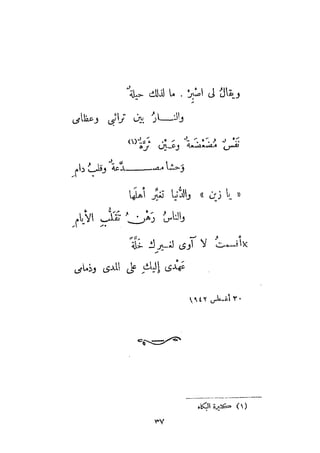 ويقالُ لى اصْبِرْ ، ما لذلك حيلةٌ
والنــارُ بين ترائبى وعظامى
نَفْسٌ مُضَعْضَعةٌ وعَــيْن ثَرَّةٌ(١)
وَحشاً مصــدَّعةٌ وقلبٌ دامِ
« يا زين » والدُّنيا تغيِّر أهلَها
والناسُ رَهْنُ تَقَلُّبِ الأيامِ
أقسمتُ لا آوى لغــيرك خَلَّةً
عهْدى إليكِ على المدى وذمامى
٣٠ أغسطس ١٩٤٢
(١) كثيرة البكاء
٣٧